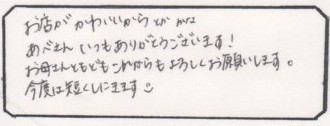 お店がかわいいから とか
あべさん いつもありがとうございます！
お母さんともどもこれからもよろしくお願いします。
今度は短くしにきます